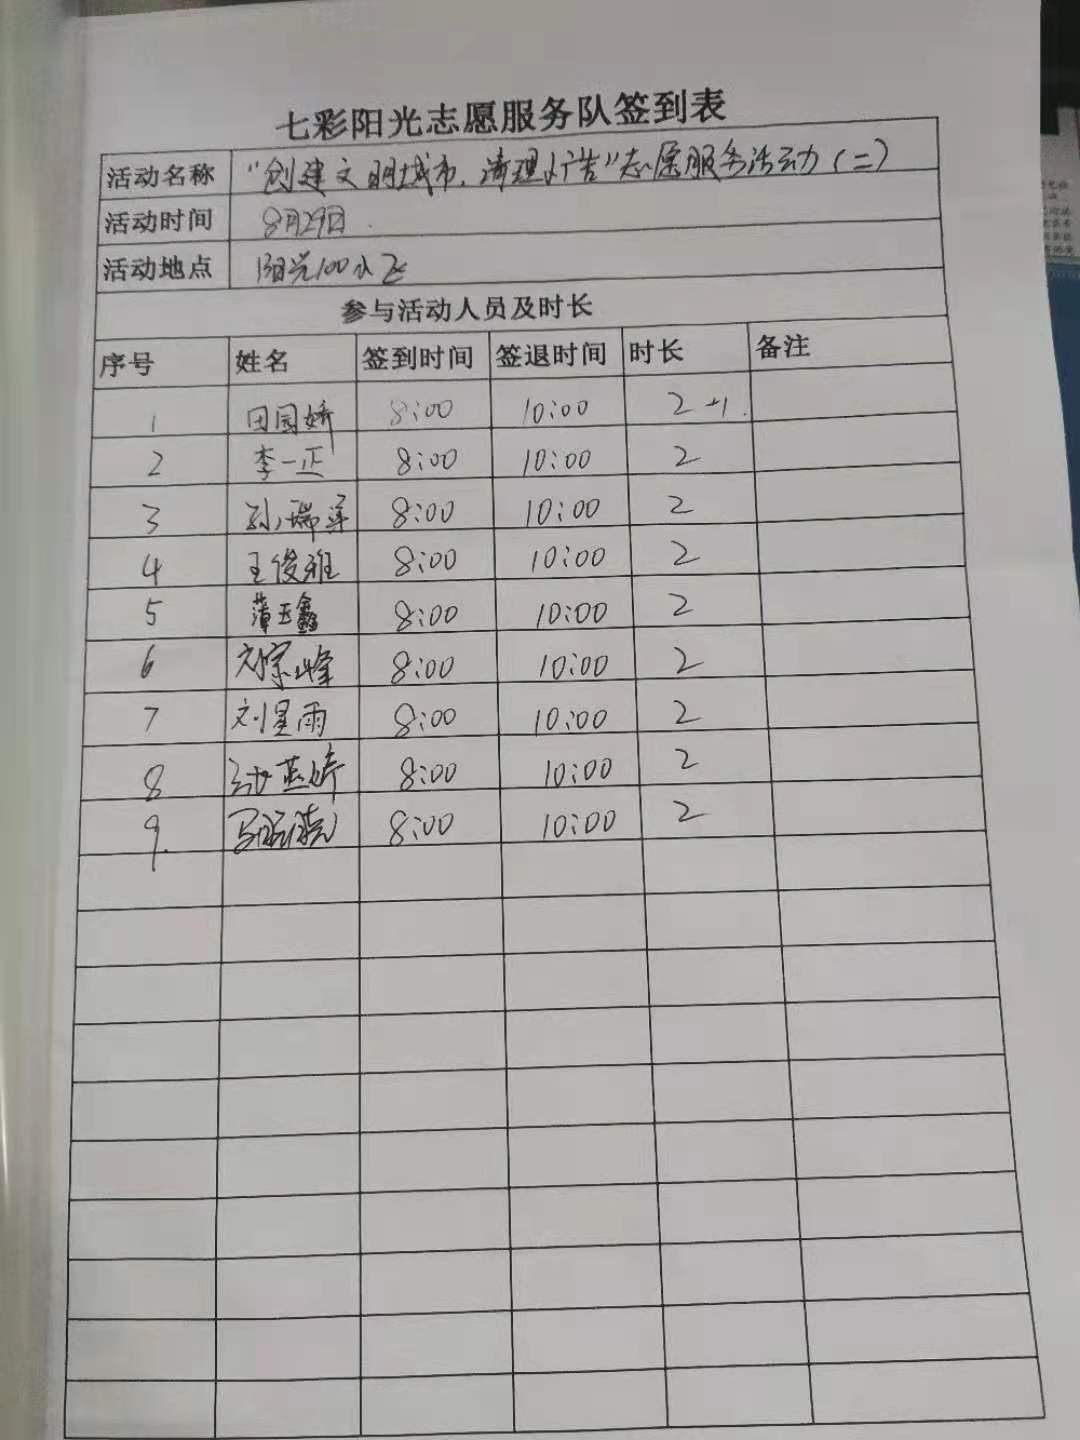 七彩阳光志愿服务队签到表
活动名称 "创建文明城市,清理小广告"志愿服务活动(二)
活动时间 8月29日.
活动地点 阳光100小区
参与活动人员及时长
序号 姓名 签到时间 签退时间 时长 备注
1 田园娇 8:00 10:00 2+1.
2 李一正 8:00 10:00 2
3 孙瑞泽 8:00 10:00 2
4 王俊雅 8:00 10:00 2
5 薄玉鑫 8:00 10:00 2
6 刘宗峰 8:00 10:00 2
7 刘星雨 8:00 10:00 2
8 8:00 10:00 2
9. 8:00 10:00 2